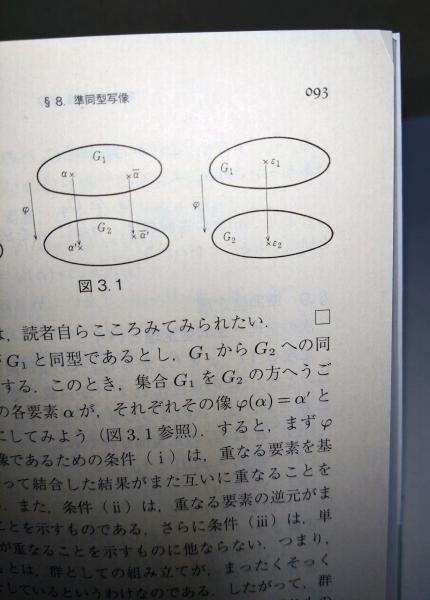 §8. 準同型写像
093
G₁
α×
×α̅
φ
G₂
α'×
×α̅'
G₁
×ε₁
φ
G₂
×ε₂
図 3.1
は,読者自らこころみてみられたい. □
G₁ と同型であるとし,G₁ から G₂ への同
する.このとき,集合 G₁ を G₂ の方へうご
の各要素 α が,それぞれその像 φ(α)=α' と
にしてみよう(図 3.1 参照).すると,まず φ
像であるための条件(i)は,重なる要素を基
って結合した結果がまた互いに重なることを
.また,条件(ii)は,重なる要素の逆元がま
ことを示すものである.さらに条件(iii)は,単
が重なることを示すものに他ならない.つまり,
とは,群としての組み立てが,まったくそっく
しているというわけなのである.したがって,群